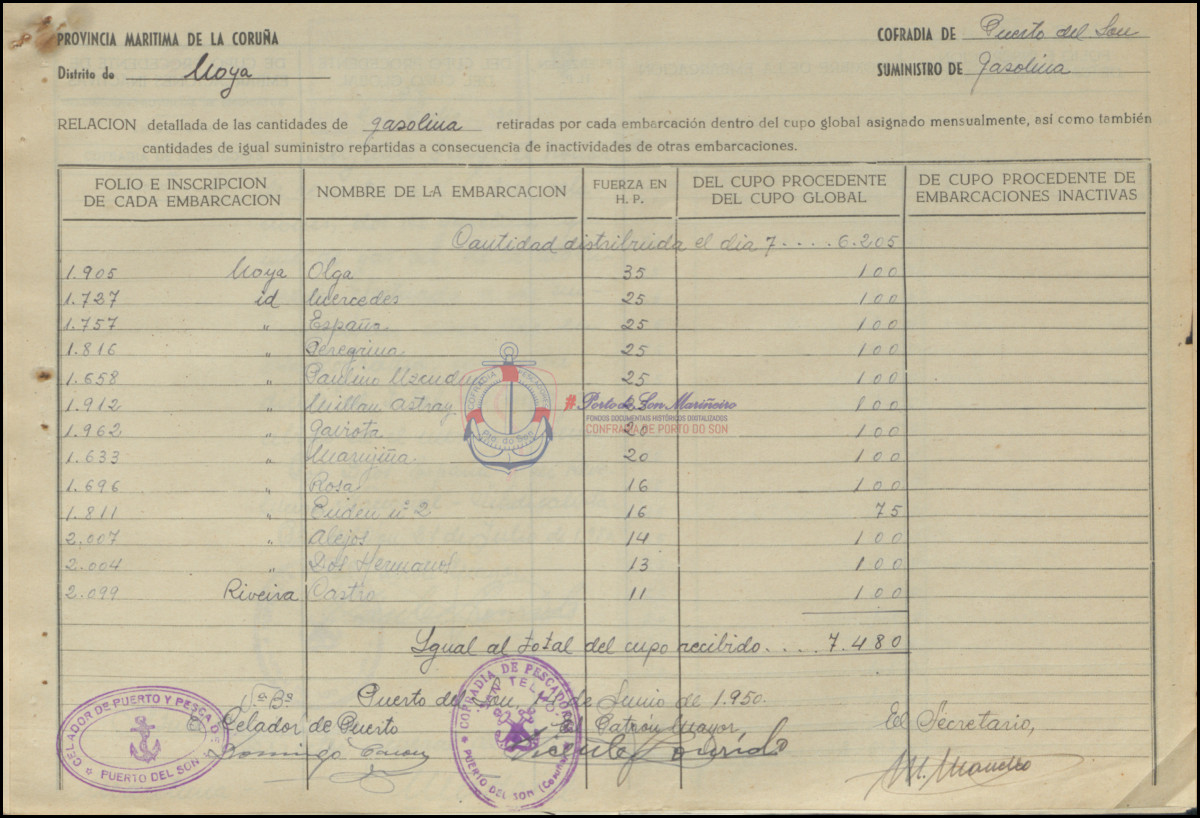 PROVINCIA MARITIMA DE LA CORUÑA
COFRADIA DE Puerto del Son
Distrito de Noya
SUMINISTRO DE gasolina
RELACION detallada de las cantidades de gasolina retiradas por cada embarcación dentro del cupo global asignado mensualmente, así como también
cantidades de igual suministro repartidas a consecuencia de inactividades de otras embarcaciones.
FOLIO E INSCRIPCION DE CADA EMBARCACION
NOMBRE DE LA EMBARCACION
FUERZA EN H. P.
DEL CUPO PROCEDENTE DEL CUPO GLOBAL
DE CUPO PROCEDENTE DE EMBARCACIONES INACTIVAS
Cantidad distribuida el dia 7 . . . . 6.205
1.905 Noya Olga 35 100
1.727 id Mercedes 25 100
1.757 " España 25 100
1.816 " Peregrina 25 100
1.658 " Paulino Uzcudun 25 100
1.912 " Millan Astray 100
1.962 " Gaviota 20 100
1.633 " Marujiña 20 100
1.696 " Rosa 16 100
1.811 " nº 2 16 75
2.007 " Alejos 14 100
2.004 " Dos Hermanos 13 100
2.099 Riveira Castro 11 100
Igual al total del cupo recibido . . . . 7.480
Puerto del Son, de Junio de 1.950.
Vº Bº
El Celador de Puerto
El Patrón Mayor
El Secretario,
Domingo
Vicente
M.
CELADOR DE PUERTO Y PESCA DE
PUERTO DEL SON
COFRADIA DE PESCADORES
SAN TELMO
PUERTO DEL SON (Coruña)
COFRADÍA PESCADORES
Pto. do Son
#Porto do Son Mariñeiro
FONDOS DOCUMENTAIS HISTÓRICOS DIGITALIZADOS
CONFRARÍA DE PORTO DO SON